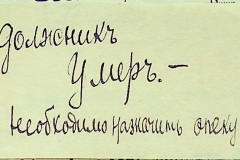 Должникъ
Умеръ.—
Необходимо назначить опеку